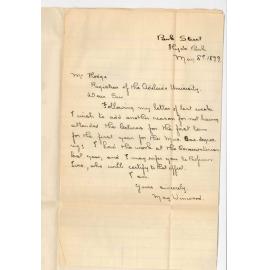 Park Street
Hyde Park
May 8th 1899
Mr Hodge
Registrar of the Adelaide University
Dear Sir
Following my letter of last week
I wish to add another reason for not having
attended the lectures for the first term
for the first year for the Mus. Bac degree
I had the work at the Conservatorium
last year, and I may refer you to Professor
Ives, who will certify to that effect.
I am
Yours sincerely
May